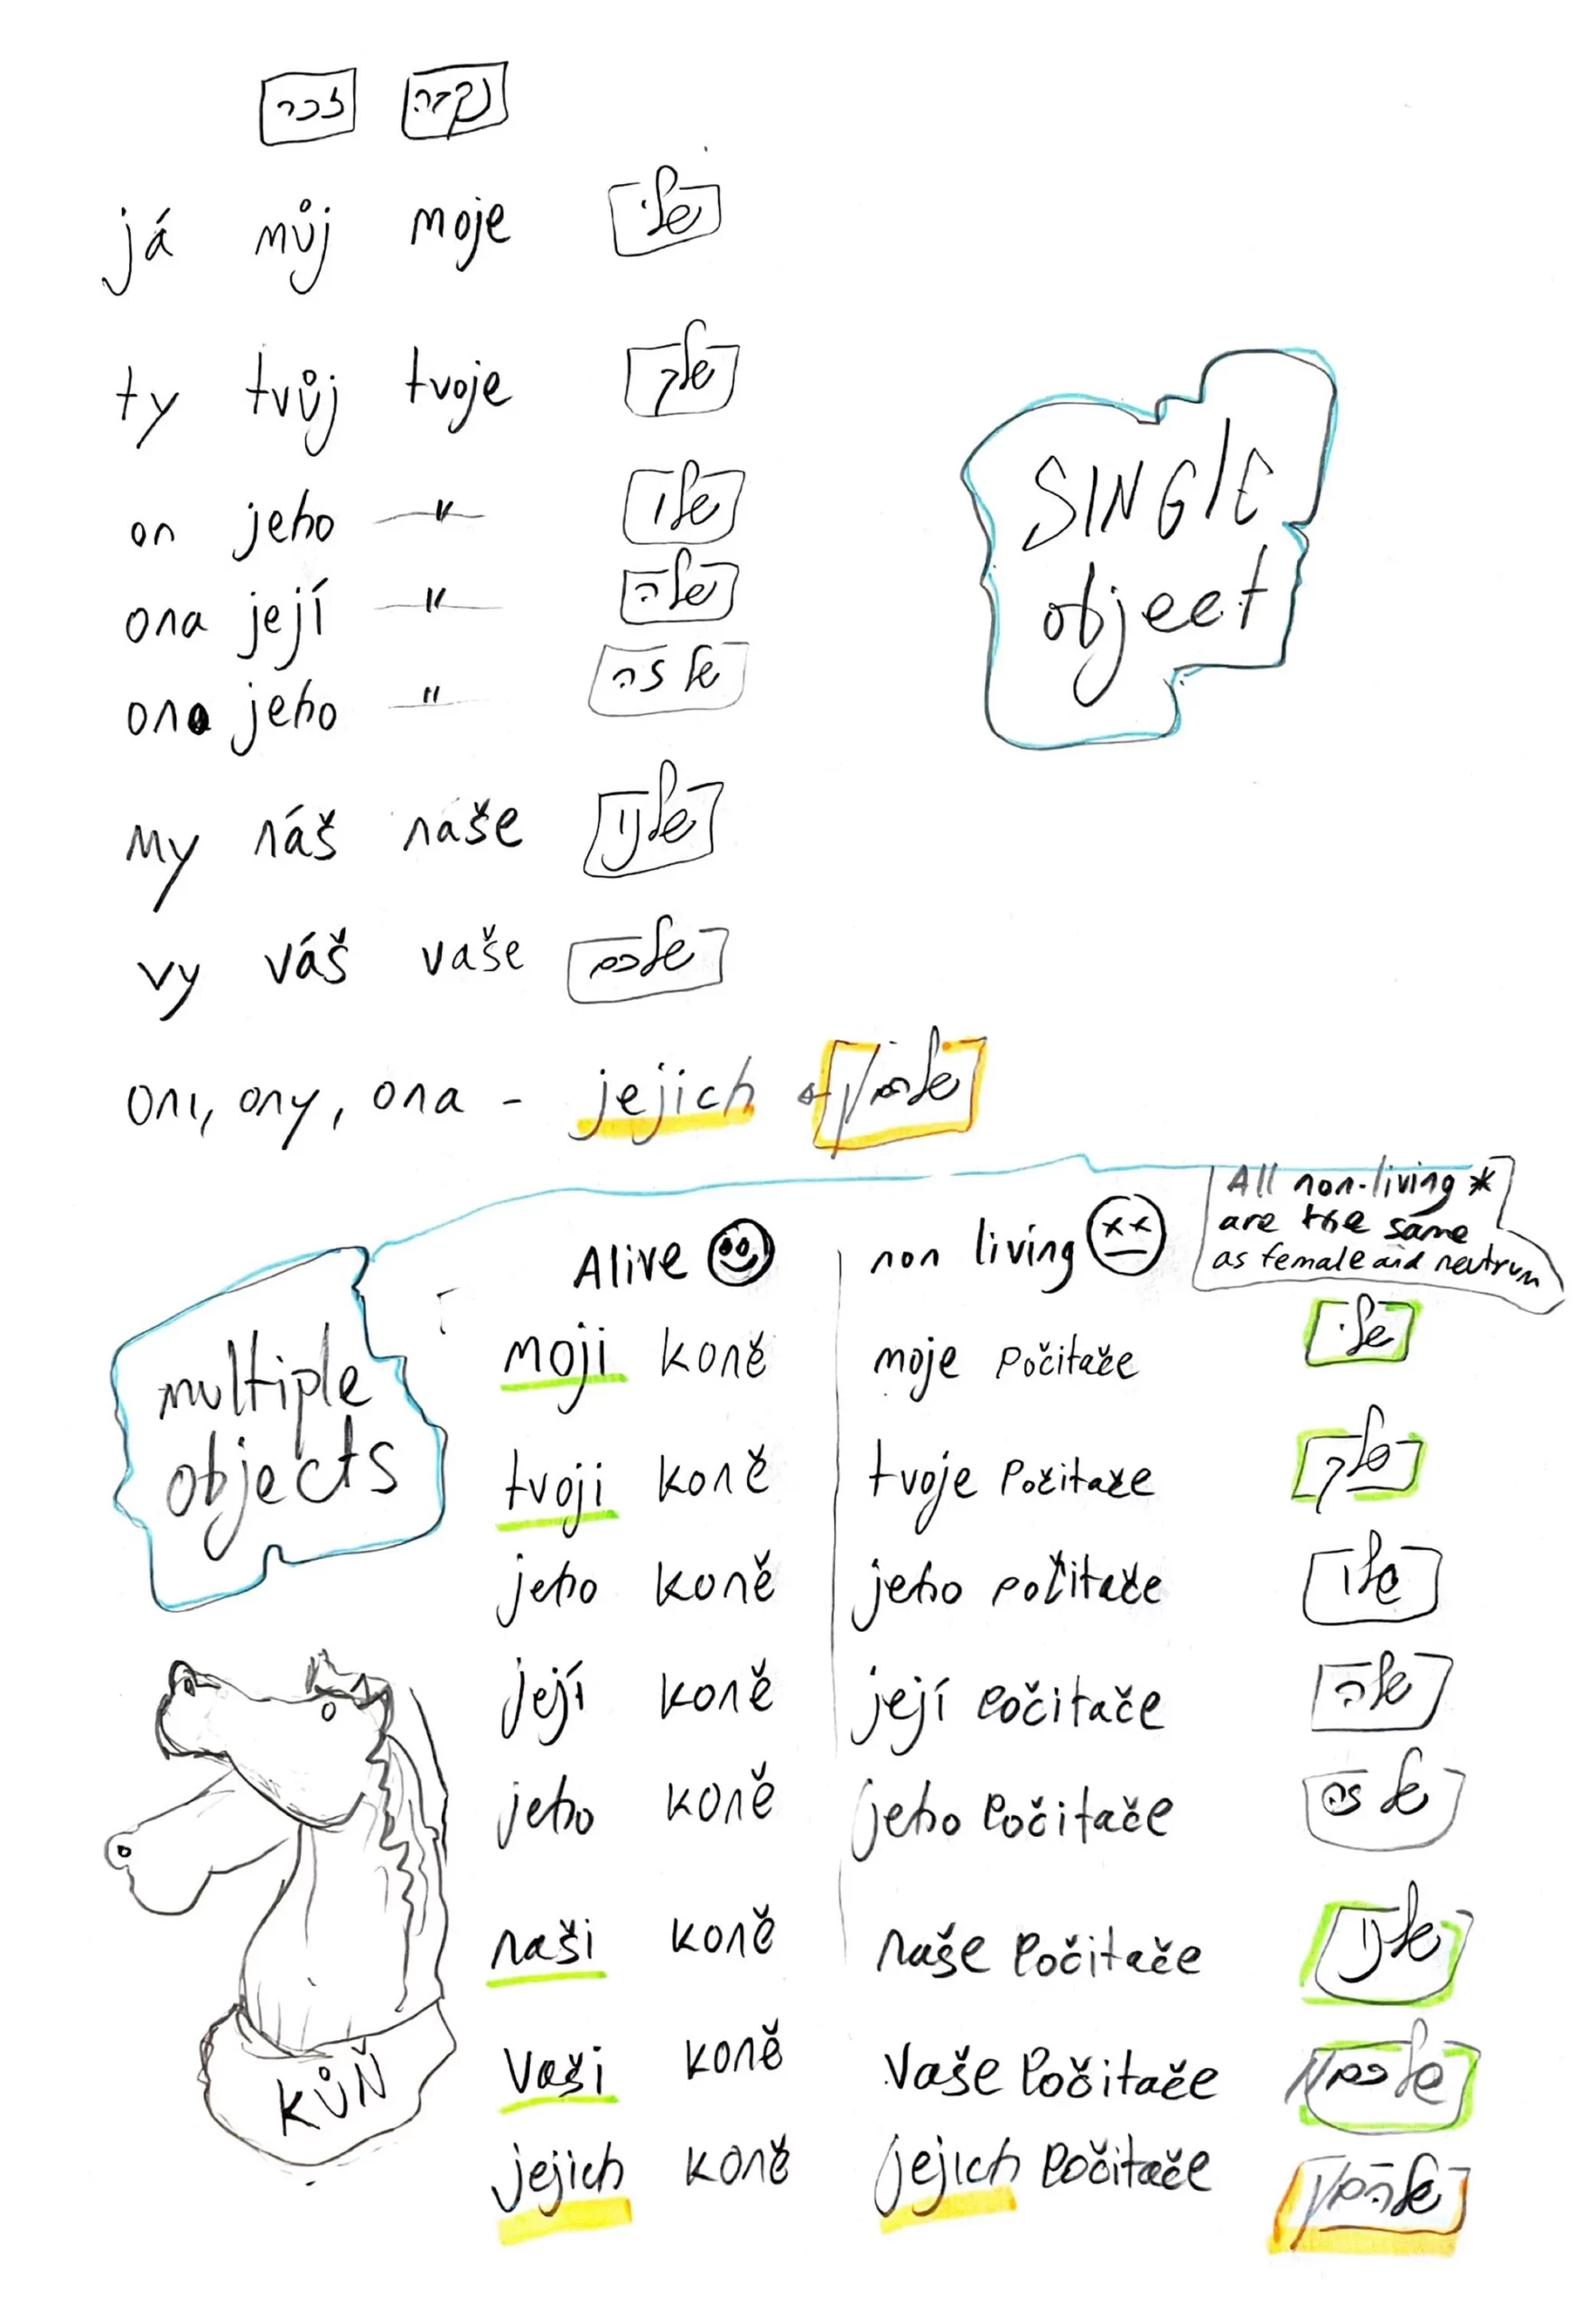 זכר נקבה
já můj moje שלי
ty tvůj tvoje שלך
on jeho —"— שלו
ona její —"— שלה
ono jeho —"— של זה
my náš naše שלנו
vy váš vaše שלכם
oni, ony, ona - jejich שלהם/ן
SINGLE
object
multiple
objects
Alive non living
All non-living *
are the same
as female and neutrum
moji koně moje Počitače שלי
tvoji koně tvoje Počitače שלך
jeho koně jeho Počitače שלו
její koně její Počitače שלה
jeho koně jeho Počitače של זה
naši koně naše Počitače שלנו
Vaši koně Vaše Počitače שלכם/ן
jejich koně jejich Počitače שלהם/ן
KŮŇ